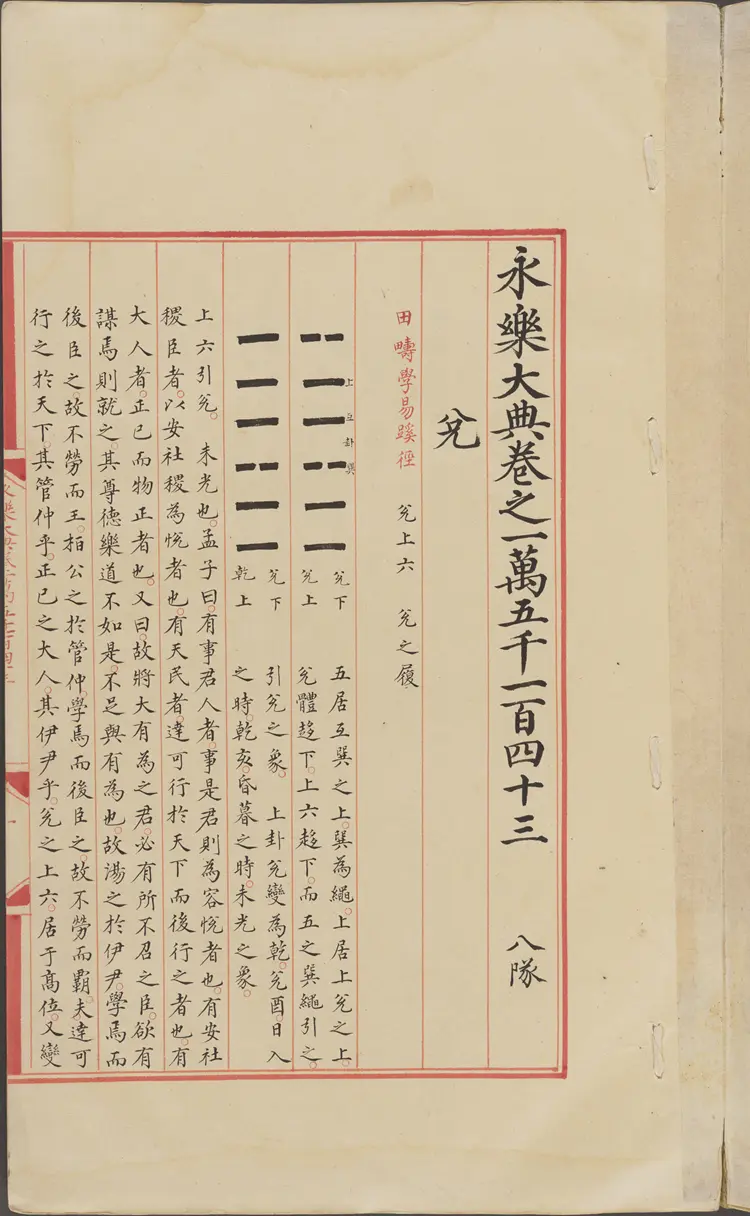 永樂大典卷之一萬五千一百四十三　八隊
兌
田疇學易蹊徑　兌上六　兌之履
上互卦巽
兌下
兌上
兌下
乾上
五居互巽之上。巽為繩。上居上兌之上。
兌體趍下。上六趍下。而五之巽繩引之。
引兌之象。　上卦兌變為乾。兌酉。日入
之時。乾亥。昏暮之時。未光之象。
上六引兌。　未光也。孟子曰。有事君人者。事是君則為容悅者也。有安社
稷臣者。以安社稷為悅者也。有天民者。達可行於天下而後行之者也。有
大人者。正已而物正者也。又曰。故將大有為之君。必有所不召之臣。欲有
謀焉則就之。其尊德樂道不如是。不足與有為也。故湯之於伊尹。學焉而
後臣之。故不勞而王。桓公之於管仲。學焉而後臣之。故不勞而霸。夫達可
行之於天下。其管仲乎。正已之大人。其伊尹乎。兌之上六。居于高位。又變